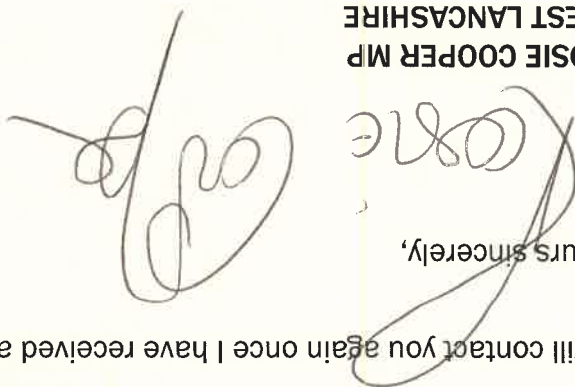 ill contact you again once I have received a
urs sincerely,
Rosie
OSIE COOPER MP
EST LANCASHIRE